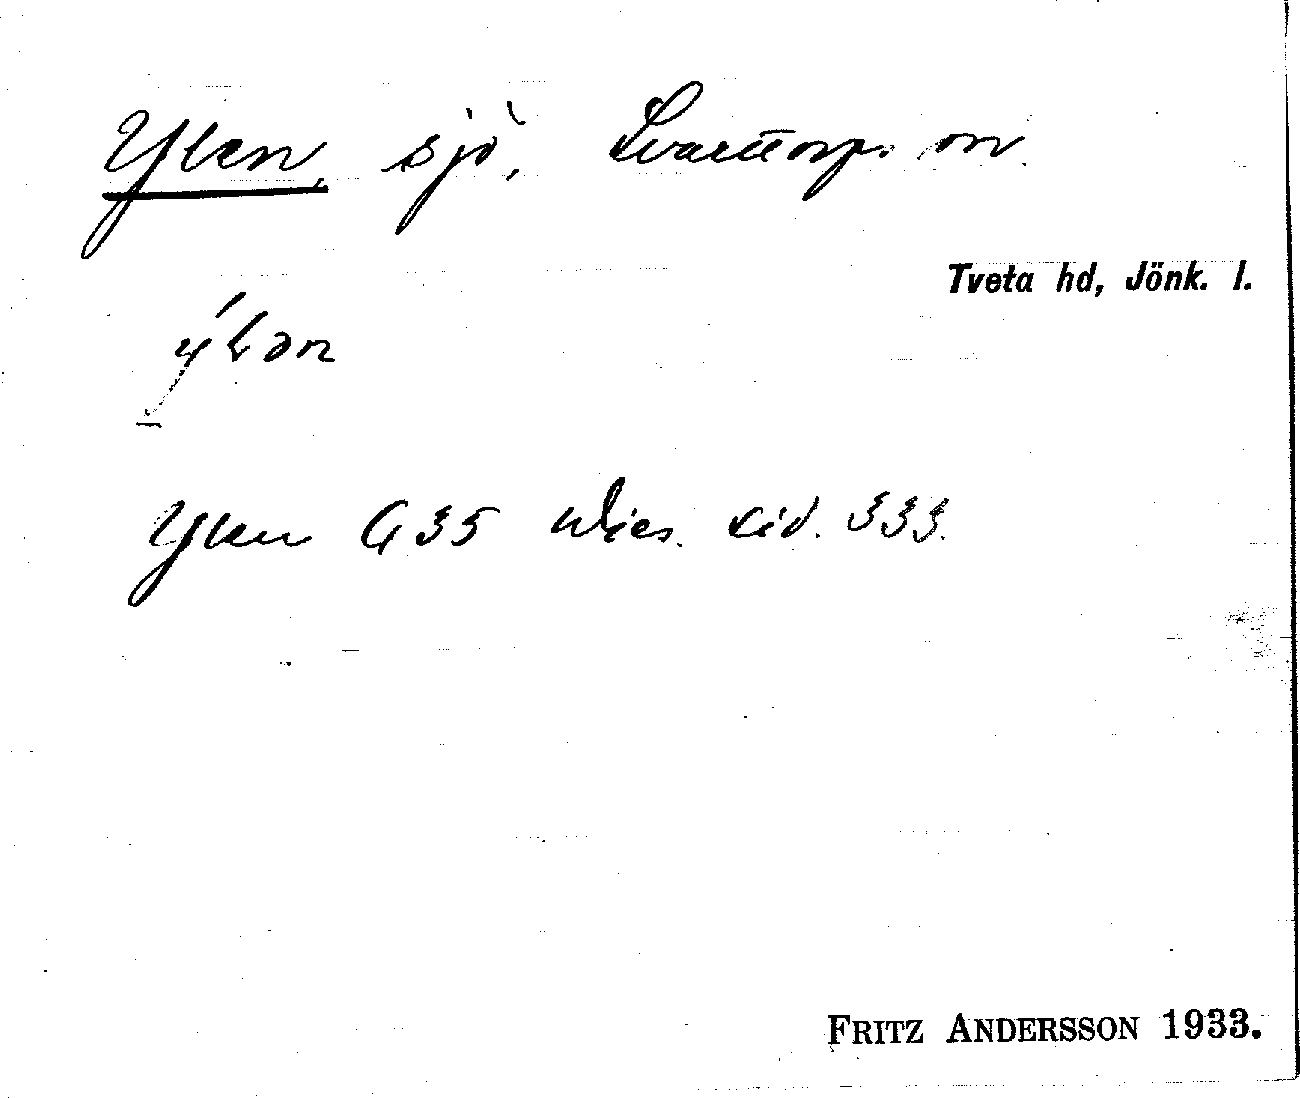 Ylen, sjö, Svarttorps sn
Tveta hd, Jönk. l.
ýlən
Ylen G 35 Wies. sid. 333.
FRITZ ANDERSSON 1933.